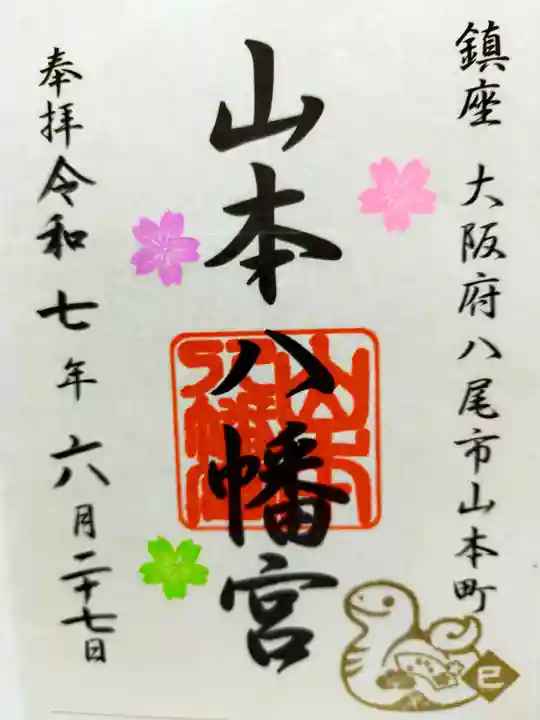 鎮座 大阪府八尾市山本町
山本八幡宮
奉拝 令和七年六月二十七日
巳